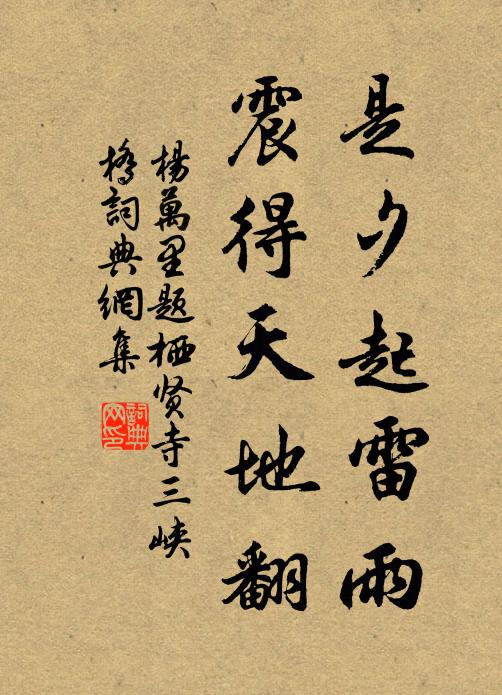 是夕起雷雨
震得天地翻
楊萬里题栖贤寺三峡
橋詞典網集
詞典
网印